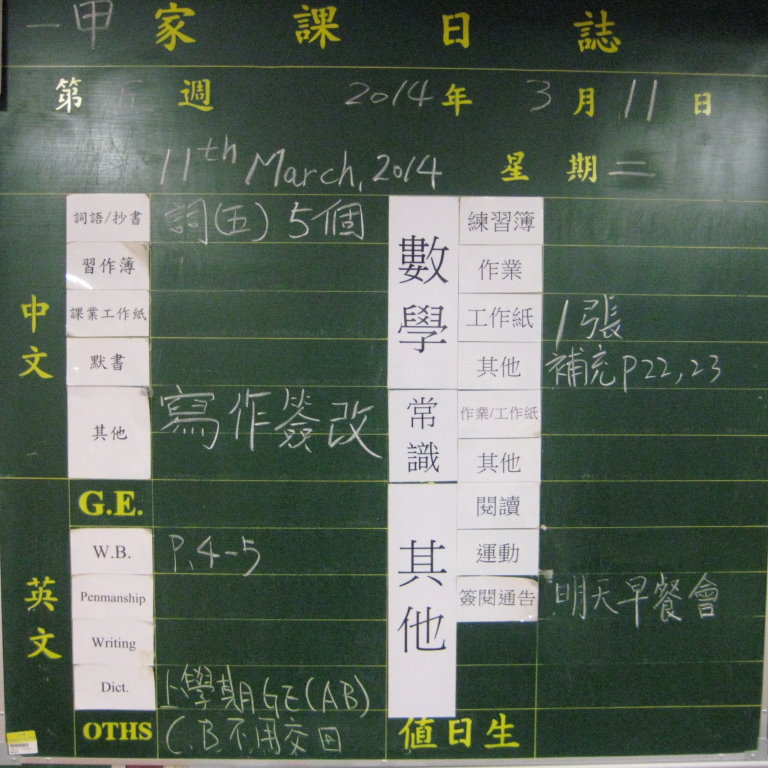 一甲 家課日誌
第 五 週 2014 年 3 月 11 日
11th March, 2014 星期二
中文
詞語/抄書 詞(五) 5個
習作簿
課業工作紙
默書
其他 寫作簽改
英文
G.E.
W.B. P.4-5
Penmanship
Writing
Dict. 上學期GE(AB)
OTHS C.B不用交回
數學
練習簿
作業
工作紙 1張
其他 補充P22,23
常識
作業/工作紙
其他
其他
閱讀
運動
簽閱通告 明天早餐會
值日生